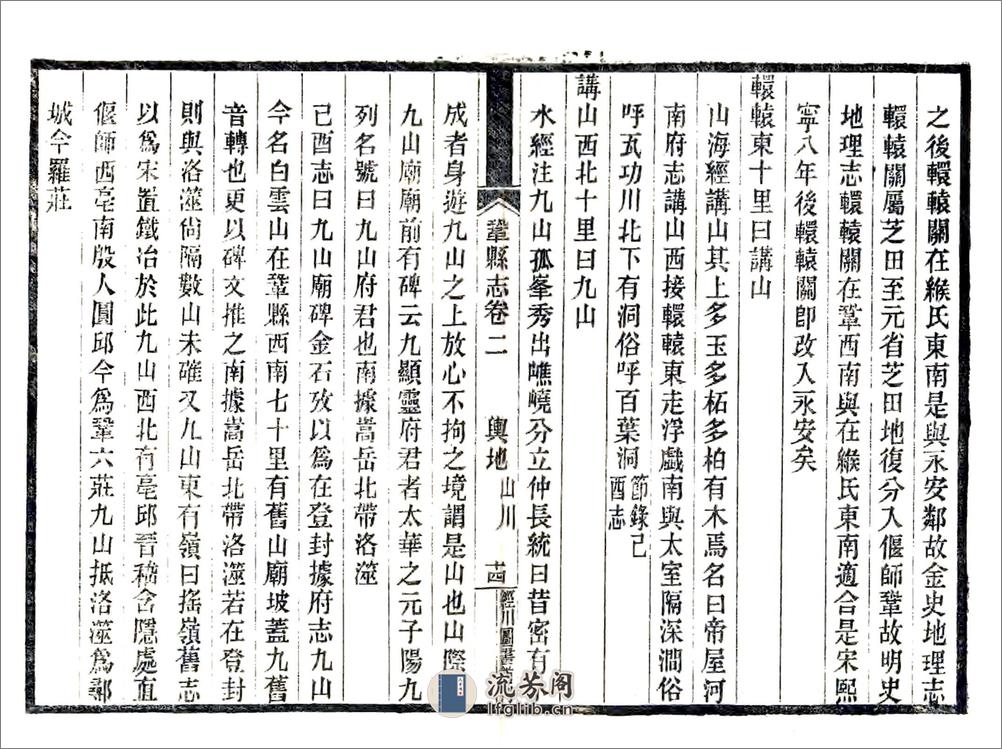 之後轘轅關在緱氏東南是與永安鄰故金史地理志
轘轅關屬芝田至元省芝田地復分入偃師鞏故明史
地理志轘轅關在鞏西南與在緱氏東南適合是宋熙
寧八年後轘轅關卽改入永安矣
轘轅東十里曰講山
山海經講山其上多玉多柘多柏有木焉名曰帝屋河
南府志講山西接轘轅東走浮戲南與太室隔深澗俗
呼瓦功川北下有洞俗呼百葉洞節錄己酉志
講山西北十里曰九山
水經注九山孤峯秀出嶕嶢分立仲長統曰昔密有
鞏縣志卷二 輿地 山川 十四 經川圖書
成者身遊九山之上放心不拘之境謂是山也山際
九山廟廟前有碑云九顯靈府君者太華之元子陽九
列名號曰九山府君也南據嵩岳北帶洛澨
己酉志曰九山廟碑金石攷以爲在登封據府志九山
今名白雲山在鞏縣西南七十里有舊山廟坡蓋九舊
音轉也更以碑文推之南據嵩岳北帶洛澨若在登封
則與洛澨尙隔數山未確又九山東有嶺曰搖嶺舊志
以爲宋置鐵冶於此九山西北有亳邱晉嵇含隱處直
偃師西亳南殷人圓邱今爲鞏六莊九山抵洛澨爲鄩
城今羅莊
流芬阁
lfglib.cn